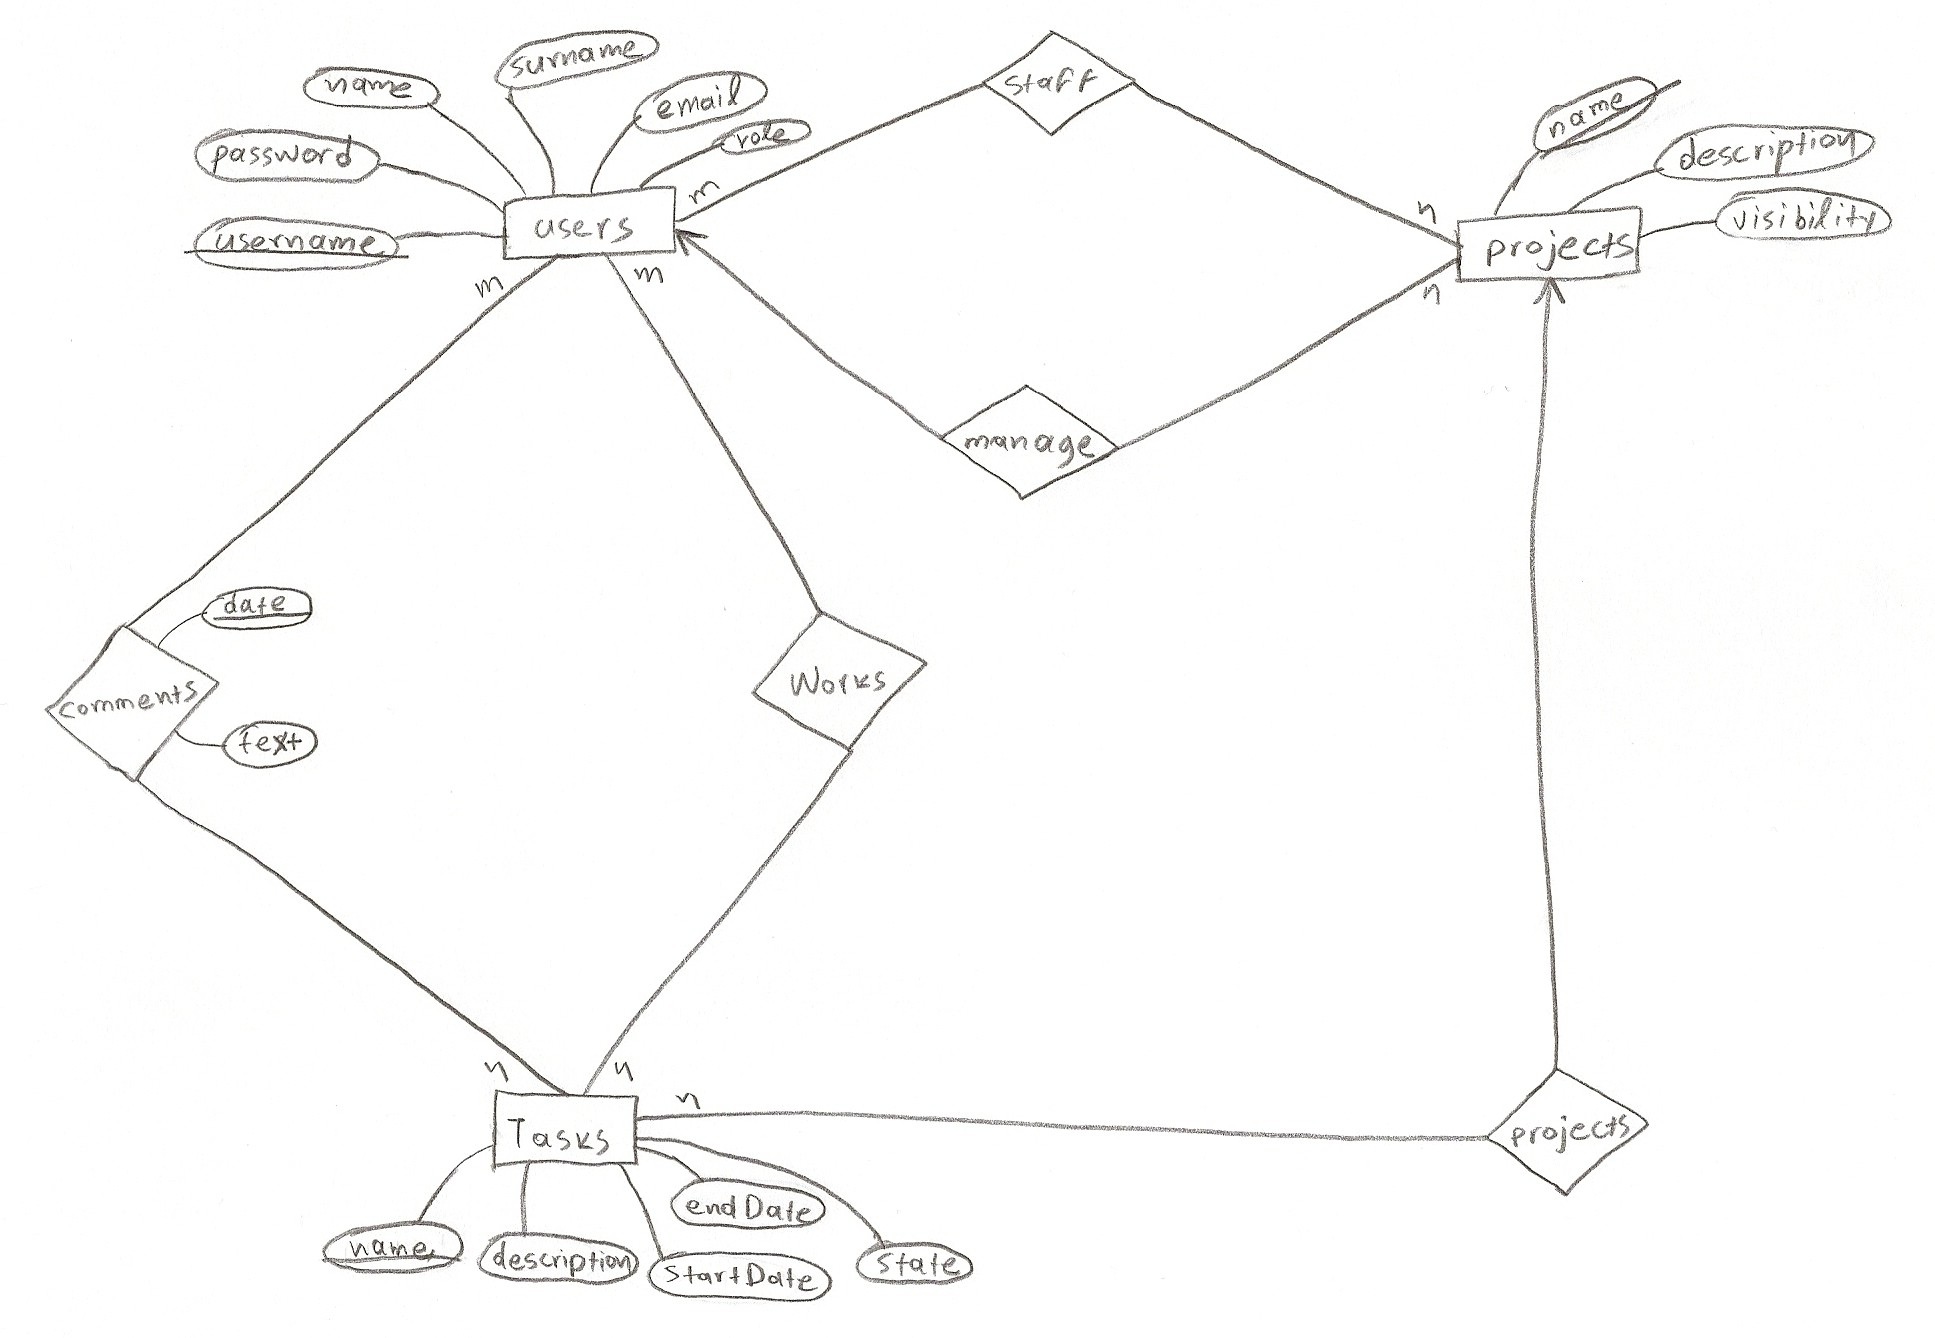 surname
name
email
role
password
username
users
m
m
m
staff
n
n
name
description
visibility
projects
manage
date
comments
text
Works
n
n
n
Tasks
projects
name
description
startDate
endDate
state